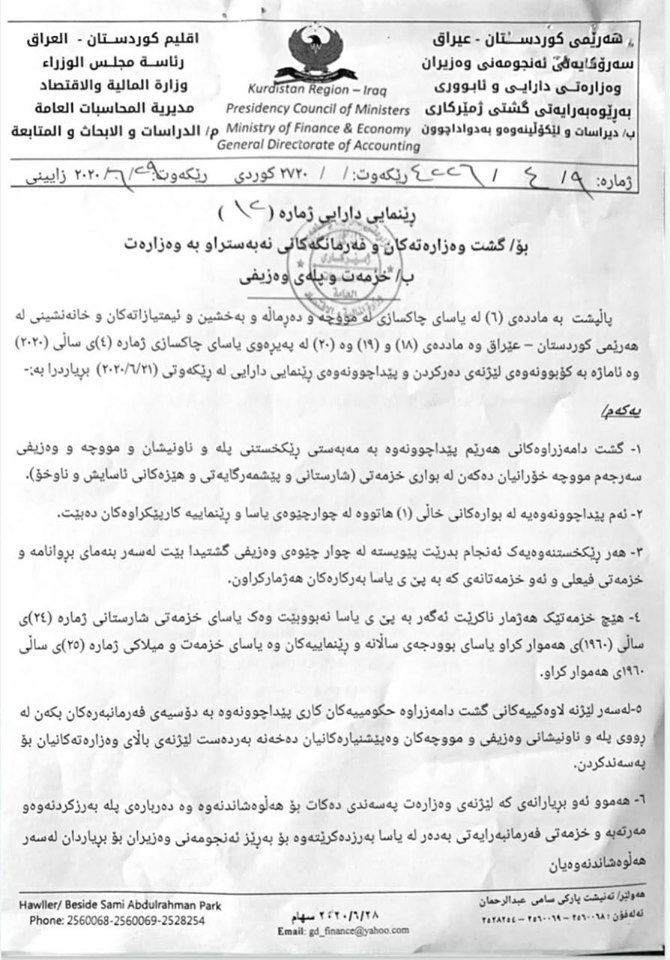 هەرێمی کوردستان - عیراق
سەرۆکایەتی ئەنجومەنی وەزیران
وەزارەتی دارایی و ئابووری
بەڕێوەبەرایەتی گشتی ژمێرکاری
ب/ دیراسات و لێکۆڵینەوەو بەدواداچوون
Kurdistan Region – Iraq
Presidency Council of Ministers
Ministry of Finance & Economy
General Directorate of Accounting
اقليم كوردستان - العراق
رئاسة مجلس الوزراء
وزارة المالية والاقتصاد
مديرية المحاسبات العامة
م/ الدراسات و الابحاث و المتابعة
ژمارە: ٩/ ٤ / ٤٢٢٦ ڕێکەوت: / / ٢٧٢٠ کوردی ڕێکەوت: ٢٩/٦/ ٢٠٢٠ زایینی
ڕێنمایی دارایی ژمارە (١٢)
بۆ/ گشت وەزارەتەکان و فەرمانگەکانی نەبەستراو بە وەزارەت
ب/ خزمەت و پلەی وەزیفی
پاڵپشت بە ماددەی (٦) لە یاسای چاکسازی لە مووچە و دەرماڵە و بەخشین و ئیمتیازاتەکان و خانەنشینی لە
هەرێمی کوردستان – عێراق وە ماددەی (١٨) و (١٩) وە (٢٠) لە پەیڕەوی یاسای چاکسازی ژمارە (٤)ی ساڵی (٢٠٢٠)
وە ئاماژە بە کۆبوونەوەی لێژنەی دەرکردن و پێداچوونەوەی ڕێنمایی دارایی لە ڕێکەوتی (٢٠٢٠/٦/٢١) بڕیاردرا بە:-
یەکەم/
١- گشت دامەزراوەکانی هەرێم پێداچوونەوە بە مەبەستی ڕێکخستنی پلە و ناونیشان و مووچە و وەزیفی
سەرجەم مووچە خۆرانیان دەکەن لە بواری خزمەتی (شارستانی و پێشمەرگایەتی و هێزەکانی ئاسایش و ناوخۆ).
٢- ئەم پێداچوونەوەیە لە بوارەکانی خاڵی (١) هاتووە لە چوارچێوەی یاسا و ڕێنماییە کارپێکراوەکان دەبێت.
٣- هەر ڕێکخستنەوەیەک ئەنجام بدرێت پێویستە لە چوار چێوەی وەزیفی گشتیدا بێت لەسەر بنەمای بڕوانامە و
خزمەتی فیعلی و ئەو خزمەتانەی کە بە پێ ی یاسا بەرکارەکان هەژمارکراون.
٤- هێچ خزمەتێک هەژمار ناکرێت ئەگەر بە پێ ی یاسا نەبووبێت وەک یاسای خزمەتی شارستانی ژمارە (٢٤)ی
ساڵی (١٩٦٠)ی هەموار کراو یاسای بوودجەی ساڵانە و ڕێنماییەکان وە یاسای خزمەت و میلاکی ژمارە (٢٥)ی ساڵی
١٩٦٠ی هەموار کراو.
٥-لەسەر لێژنە لاوەکییەکانی گشت دامەزراوە حکومییەکان کاری پێداچوونەوە بە دۆسیەی فەرمانبەرەکان بکەن لە
ڕووی پلە و ناونیشانی وەزیفی و مووچەکان وەپێشنیارەکانیان دەخەنە بەردەست لێژنەی باڵای وەزارەتەکانیان بۆ
پەسەندکردن.
٦- هەموو ئەو بڕیارانەی کە لێژنەی وەزارەت پەسەندی دەکات بۆ هەڵوەشاندنەوە وە دەربارەی پلە بەرزکردنەوەو
مەرتەبە و خزمەتی فەرمانبەرایەتی بەدەر لە یاسا بەرزدەکرێتەوە بۆ بەڕێز ئەنجومەنی وەزیران بۆ بڕیاردان لەسەر
هەڵوەشاندنەوەیان
Hawller/ Beside Sami Abdulrahman Park
Phone: 2560068-2560069-2528254
٢٠٢٠/٦/٢٨ سهام
Email: gd_finance@yahoo.com
هەولێر/ تەنیشت پارکی سامی عبدالرحمان
تەلەفۆن: ٢٥٦٠٠٦٨ – ٢٥٦٠٠٦٩ – ٢٥٢٨٢٥٤